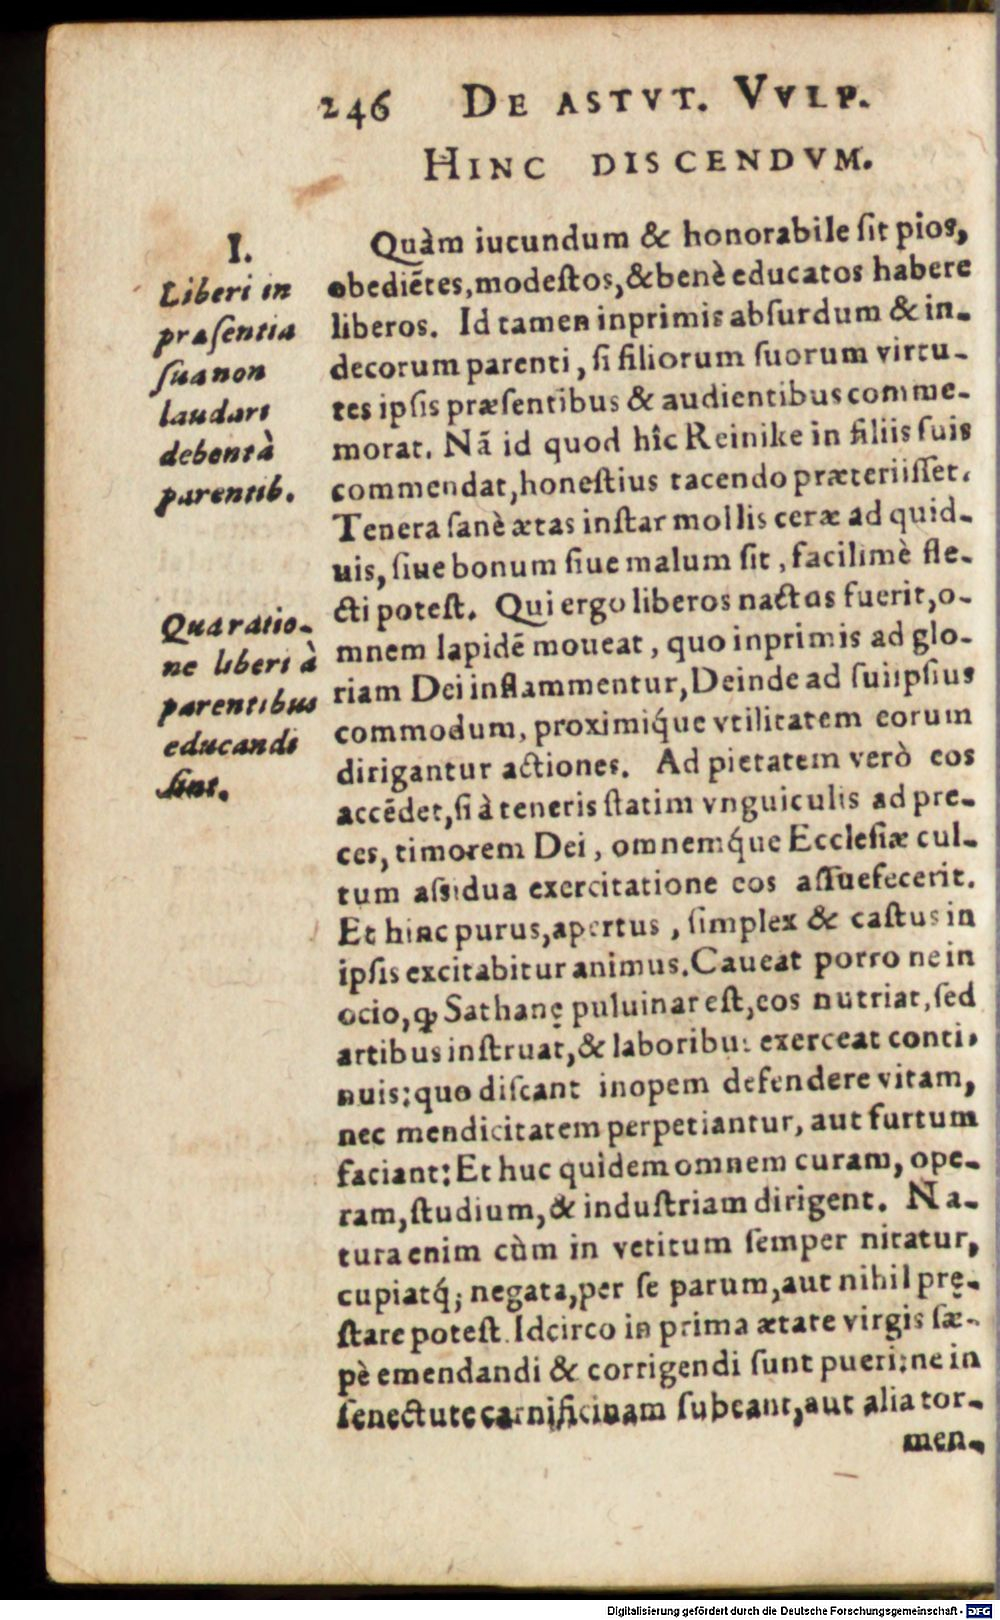 246 DE ASTVT. VVLP.
HINC DISCENDVM.
I.
Liberi in
præſentia
ſua non
laudari
debent à
parentib.
Qua ratio-
ne liberi à
parentibus
educandi
ſint.
Quàm iucundum & honorabile ſit pios,
obediẽtes, modeſtos, & benè educatos habere
liberos. Id tamen inprimis abſurdum & in-
decorum parenti, ſi filiorum ſuorum virtu-
tes ipſis præſentibus & audientibus comme-
morat. Nã id quod hîc Reinike in filiis ſuis
commendat, honeſtius tacendo præteriiſſet.
Tenera ſanè ætas inſtar mollis ceræ ad quid-
uis, ſiue bonum ſiue malum ſit, facilimè fle-
cti poteſt. Qui ergo liberos nactus fuerit, o-
mnem lapidẽ moueat, quo inprimis ad glo-
riam Dei inflammentur, Deinde ad ſuiipſius
commodum, proximiq́ue vtilitatem eorum
dirigantur actiones. Ad pietatem verò eos
accẽdet, ſi à teneris ſtatim vnguiculis ad pre-
ces, timorem Dei, omnemq́ue Eccleſiæ cul-
tum aſsidua exercitatione eos aſſuefecerit.
Et hinc purus, apertus, ſimplex & caſtus in
ipſis excitabitur animus. Caueat porro ne in
ocio, ꝙ Sathanę puluinar eſt, eos nutriat, ſed
artibus inſtruat, & laboribus exerceat conti-
nuis: quo diſcant inopem defendere vitam,
nec mendicitatem perpetiantur, aut furtum
faciant: Et huc quidem omnem curam, ope-
ram, ſtudium, & induſtriam dirigent. Na-
tura enim cùm in vetitum ſemper nitatur,
cupiatq́; negata, per ſe parum, aut nihil prę-
ſtare poteſt. Idcirco in prima ætate virgis ſæ-
pè emendandi & corrigendi ſunt pueri: ne in
ſenectute carnificinam ſubeant, aut alia tor-
men-
Digitalisierung gefördert durch die Deutsche Forschungsgemeinschaft - DFG